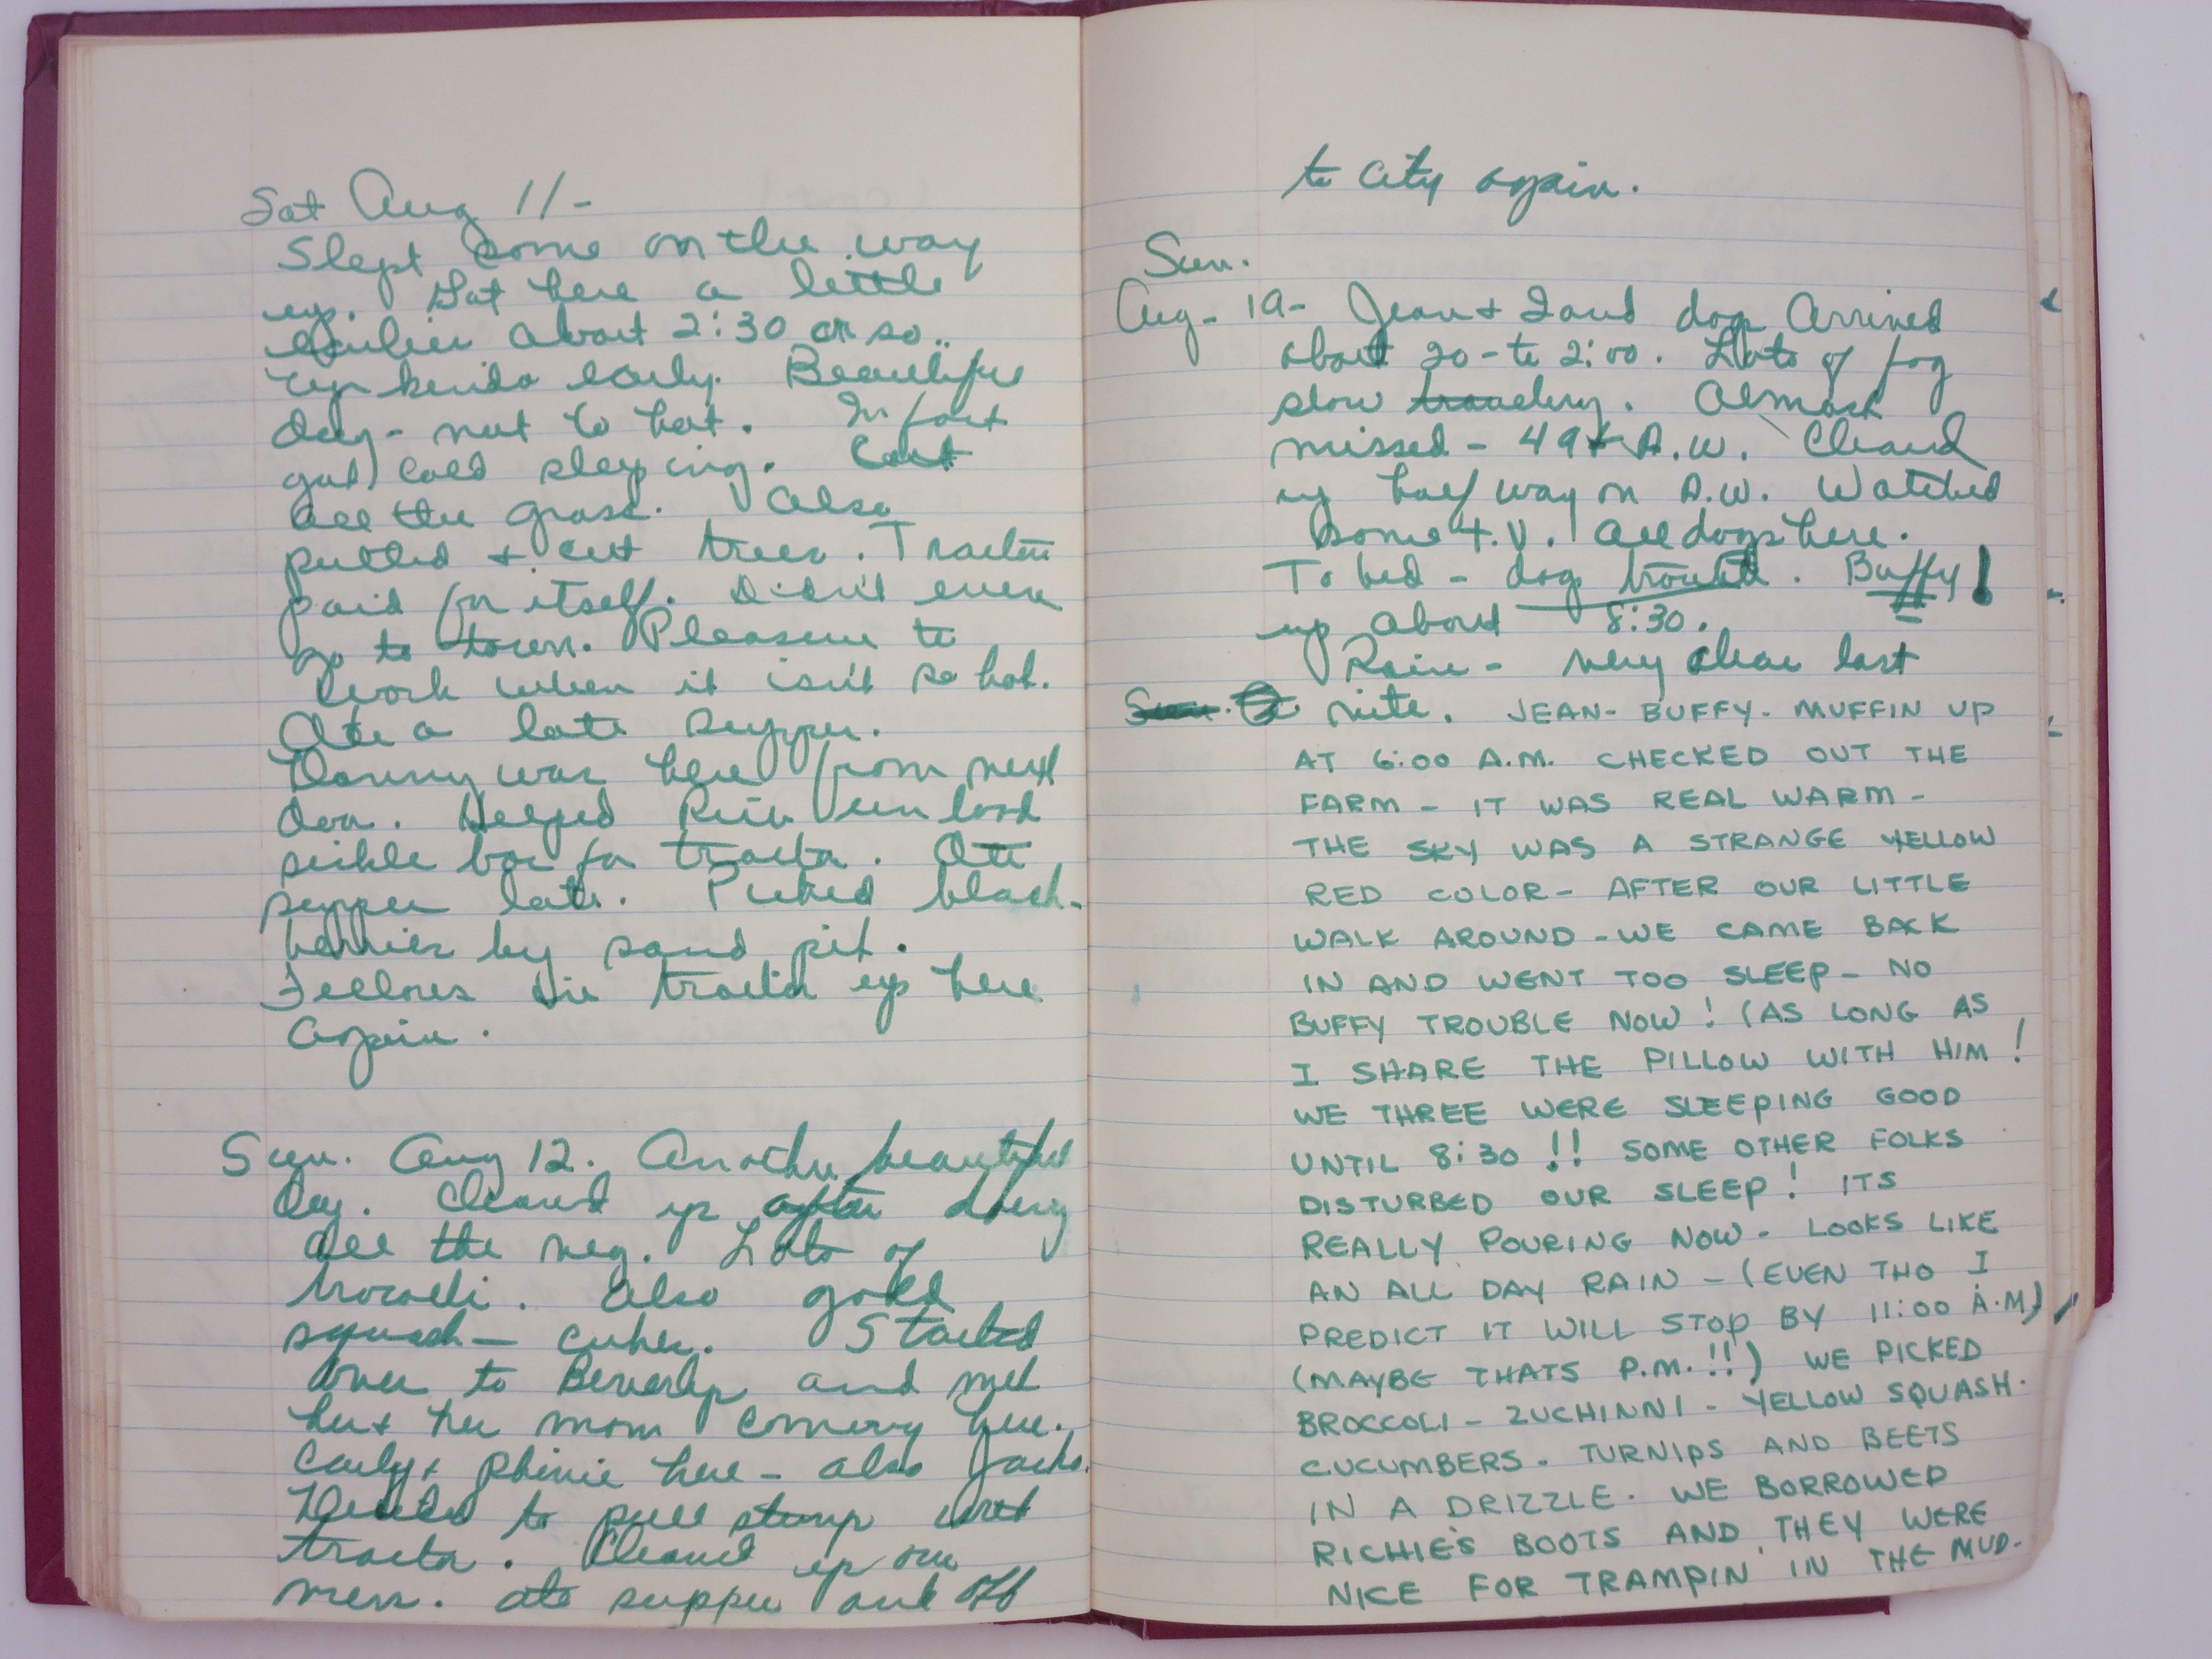 Sat Aug 11-
Slept some on the way
up. Got here a little
earlier about 2:30 or so..
up kinda early. Beautiful
day - not to hot. In fact
got cold sleeping. Cut
all the grass. Also
pulled + cut trees. Tractor
paid for itself. Didn't even
go to town. Pleasure to
work when it isn't so hot.
Ate a late supper.
Danny was here from next
door. Helped Rich unload
sickle bar for tractor. Ate
supper late. Picked black-
berries by sand pit.
Fellows tractor up here
again.
Sun. Aug 12. Another beautiful
day. Cleaned up after doing
all the veg. Lots of
brocolli. Also gold
squash - cukes. Started
over to Beverly and met
her + her mom coming here.
Carly + here - also Jacks.
to pull stump with
tractor. Cleaned up our
mess. ate supper and off
to city again.
Sun.
Aug - 19 - Jean + I and dog Arrived
about 20 - to 2:00. Lots of fog
slow . Almost
missed - 49 + D.W. Cleaned
up half way on D.W. Watched
some T.V. All dogs here.
To bed - dog trouble. Buffy!
up about 8:30.
Rain - very clear last
nite. JEAN - BUFFY - MUFFIN UP
AT 6:00 A.M. CHECKED OUT THE
FARM - IT WAS REAL WARM -
THE SKY WAS A STRANGE YELLOW
RED COLOR - AFTER OUR LITTLE
WALK AROUND - WE CAME BACK
IN AND WENT TOO SLEEP - NO
BUFFY TROUBLE NOW! (AS LONG AS
I SHARE THE PILLOW WITH HIM!
WE THREE WERE SLEEPING GOOD
UNTIL 8:30 !! SOME OTHER FOLKS
DISTURBED OUR SLEEP! ITS
REALLY POURING NOW - LOOKS LIKE
AN ALL DAY RAIN - (EVEN THO I
PREDICT IT WILL STOP BY 11:00 A.M)
(MAYBE THATS P.M.!!) WE PICKED
BROCCOLI - ZUCHINNI - YELLOW SQUASH.
CUCUMBERS. TURNIPS AND BEETS
IN A DRIZZLE. WE BORROWED
RICHIE'S BOOTS AND THEY WERE
NICE FOR TRAMPIN' IN THE MUD.